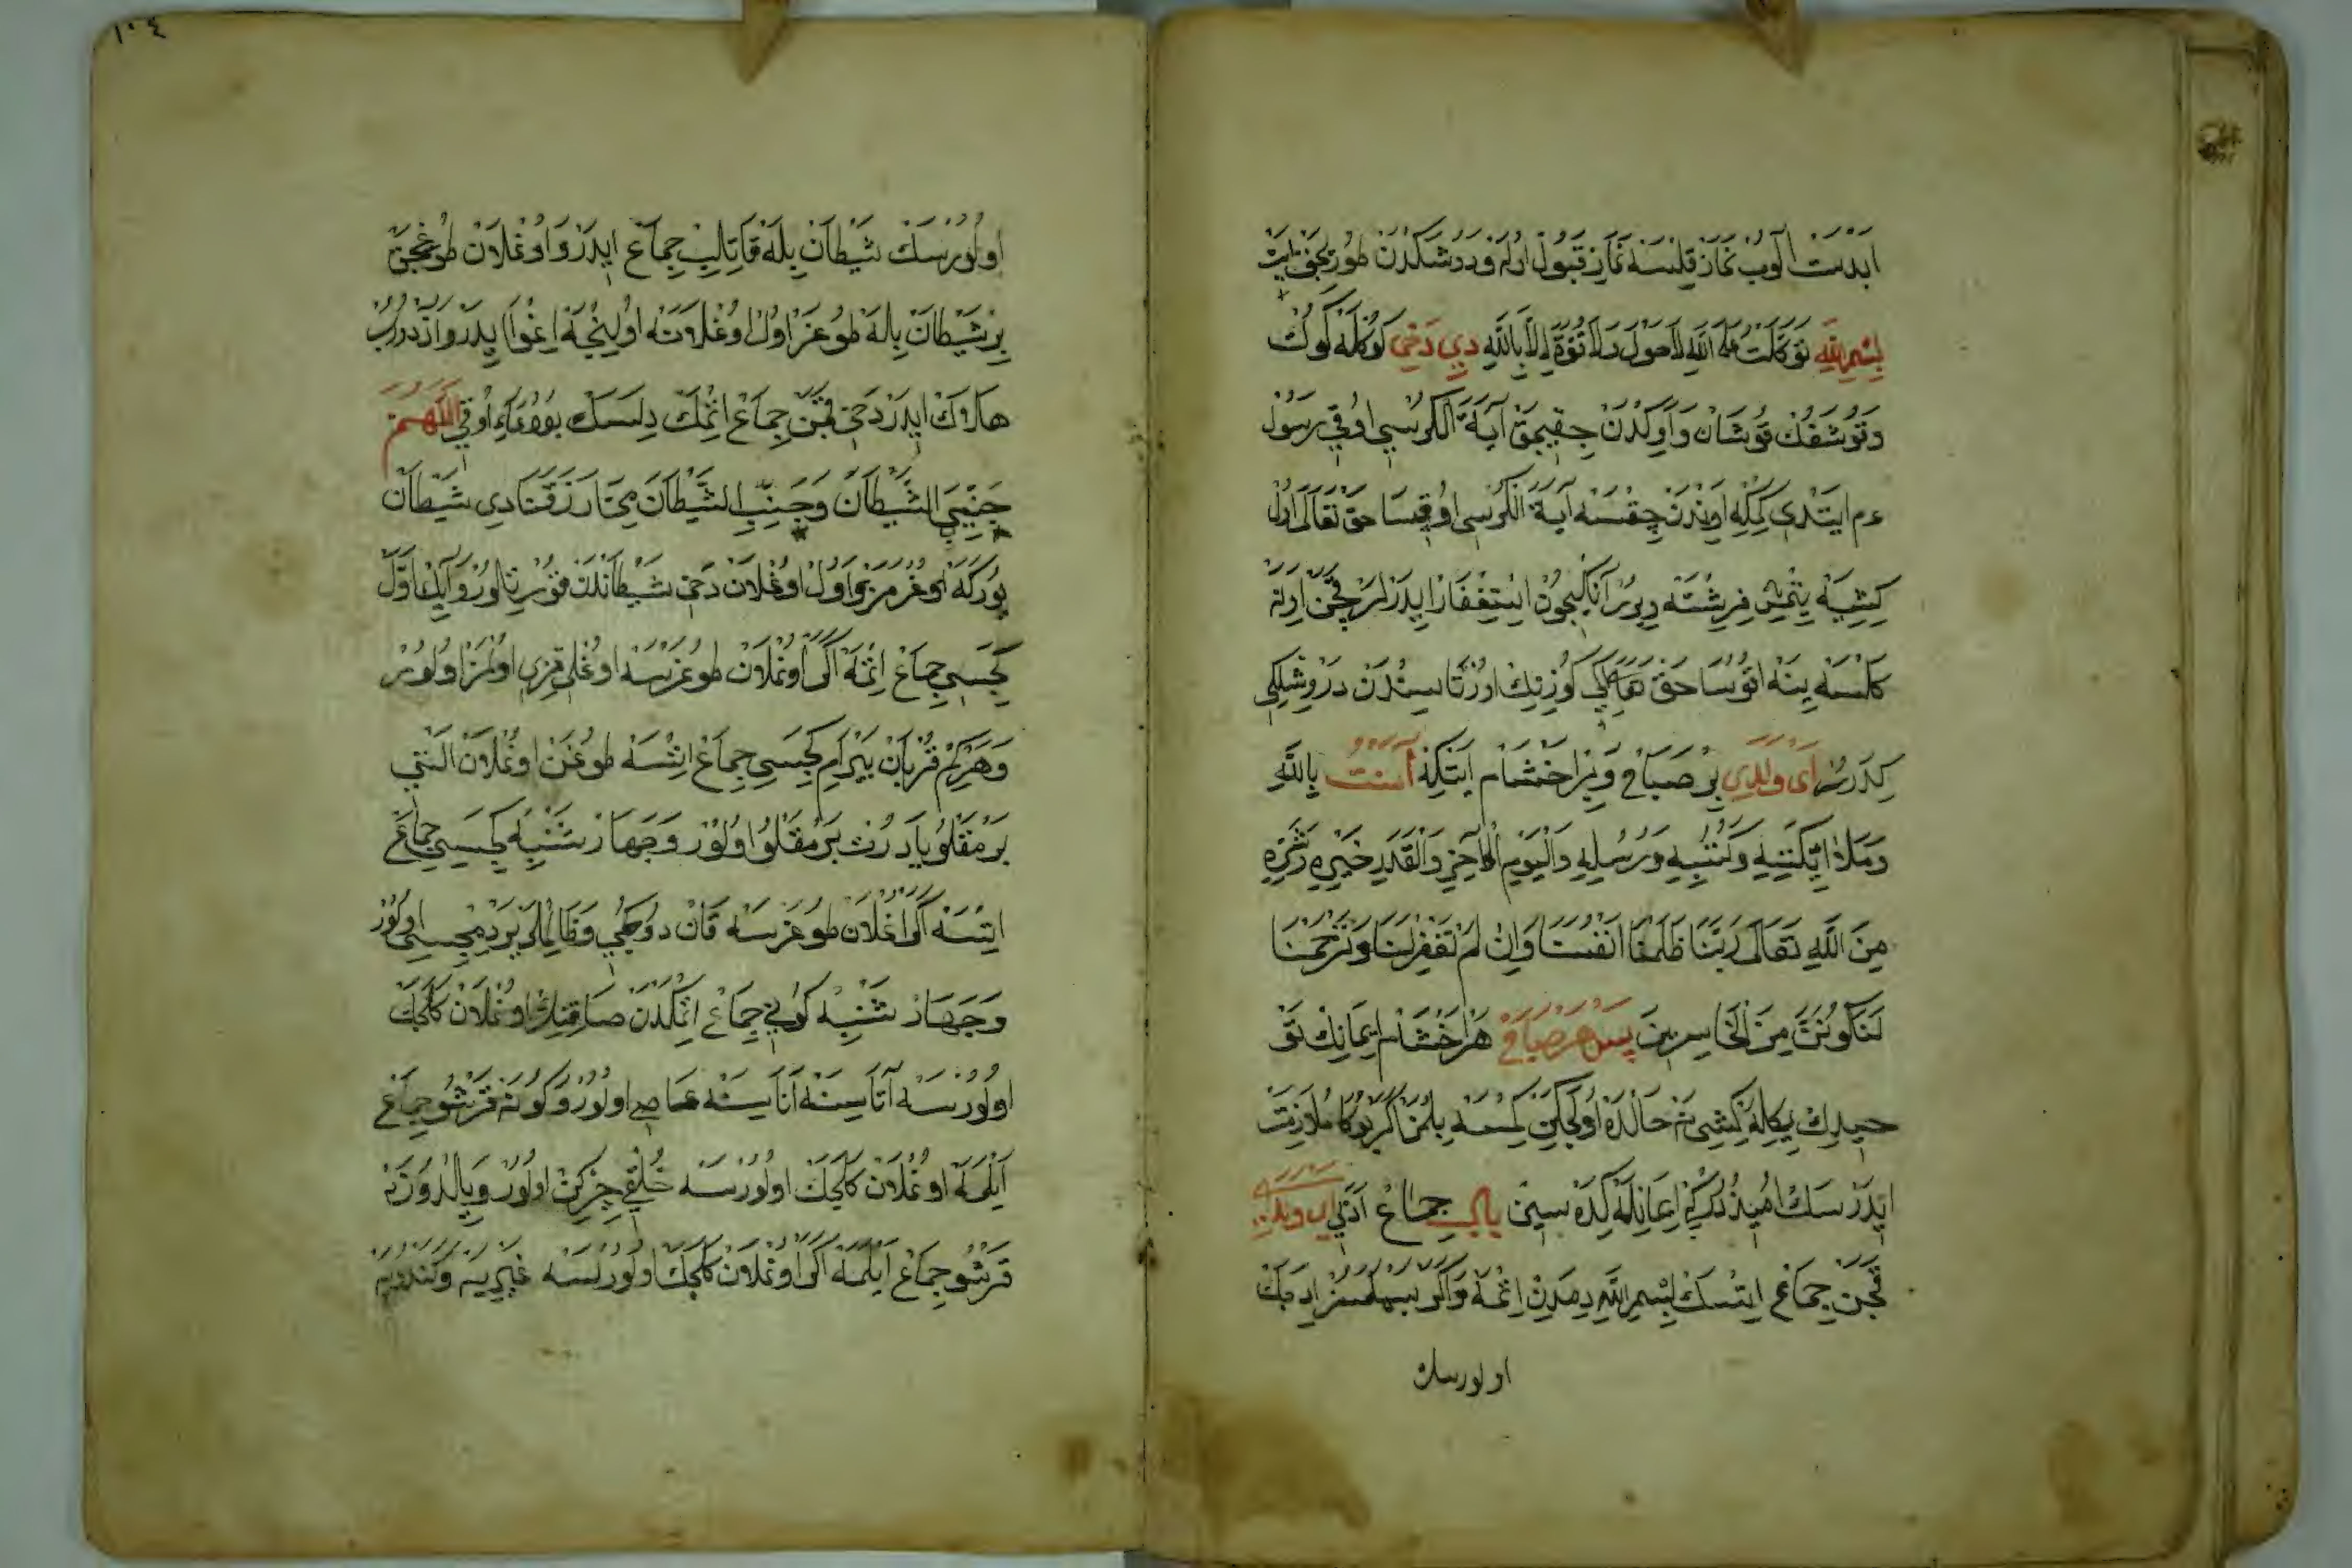 اَبْدَسْت اَلُوبْ نَمَازْ قِلَنْسَه نَمَازِ قَبُولْ اُولَه وَ دُوشَكْدَنْ طُورِيجَقْ اَيِتْ
بِسْمِ اللَّهِ تَوَكَّلْتُ عَلَى اللَّهِ لَاحَوْلَ وَلَا قُوَّةَ اِلَّا بِاللَّهِ دِي دَخِي كُوكُلَه كُوكْ
وَ تُوشَقُكْ قُوشَانْ وَ اَوِكْدَنْ چِقِيجَقْ آيَةَ الْكُرْسِي اُوقِي رَسُولْ
عم اَيِتْدِي كِمْكِه اَوِنْدَنْ چِقْسَه آيَةَ الْكُرْسِي اُوقِسَا حَقْ تَعَالَى اُولْ
كِشِيَه يِتْمِشْ فِرِشْتَه وِيرُرْ اَنُكْ اِيچُونْ اِسْتِغْفَارْ اِيدَرْلَرْ قَچَنْ اَوِنَه
كَلْسَه يِنَه اُوقُسَا حَقْ تَعَالَى اِكِي كُوزِنِكْ اُورْتَاسِنْدَنْ دَرْوِيشْلِكِي
كِدَرُرْ اَىْ وَلَدِي بِرْ صَبَاحْ وَ بِرْ اَخْشَامْ اَيِتْكِه آمَنْتُ بِاللَّهِ
وَمَلَائِكَتِهِ وَكُتُبِهِ وَرُسُلِهِ وَالْيَوْمِ الْآخِرِ وَالْقَدَرِ خَيْرِهِ وَشَرِّهِ
مِنَ اللَّهِ تَعَالَى رَبَّنَا ظَلَمْنَا اَنْفُسَنَا وَاِنْ لَمْ تَغْفِرْلَنَا وَتَرْحَمْنَا
لَنَكُونَنَّ مِنَ الْخَاسِرِينَ پَسْ هَرْ صَبَاحْ هَرْ اَخْشَامْ اِيمَانِكْ تَوْ
حِيدِكْ يِكِلَه كِشِي نَه حَالْدَه اُولَجَكِنْ كِمْسَه بِلْمَزْ اَكَرْ بُوكَا مُلَازَمَتْ
اِيدَرْسَكْ اُمِيذْدُرْكِه اِيمَانِلَه كِدَه سِينْ بَابُ جِمَاعْ آدَبِي اَىْ وَلَدِي
قَچَنْ جِمَاعْ اِيتْسَكْ بِسْمِ اللَّهِ دِمَدِنْ اِتْمَه وَاكَرْ بِسْمِلَه سِزْ اِيدَجَكْ
اولورسك
١٠٤
اُولُورْسَكْ شَيْطَانْ بِلَه قَاتِلِبْ جِمَاعْ اِيدَرْ وَ اُوغْلَانْ طُوغِجَقْ
بِرْ شَيْطَانْ بِلَه طُوغَرْ اُولْ اُوغْلَانَه اُولِنْجَه اِغْوَا اِيدَرْ وَ آزْدُورُبْ
هَلَاكْ اِيدَرْ دَخِي قَچَنْ جِمَاعْ اِتْمَكْ دِلَسَكْ بُو دُعَايِي اُوقِي اَللَّهُمَّ
جَنِّبْنِي الشَّيْطَانَ وَجَنِّبِ الشَّيْطَانَ مِمَّا رَزَقْتَنَا دِي شَيْطَانْ
يُورَكَه اُوغْرَمَزْ وَ اُولْ اُوغْلَانْ دَخِي شَيْطَانْدَنْ قُورْتُلُورْ وَ آيِكْ اَوَّلْ
كِجَسِي جِمَاعْ اِتْمَه اَكَرْ اُوغْلَانْ طُوغَرْسَه اُوغْلِي قِزِي اُولْمَزْ اُولُورْ
وَ هَرْكِمْ قُرْبَانْ بَيْرَامْ كِجَسِي جِمَاعْ اِتْسَه طُوغَنْ اُوغْلَانْ اَلْتِي
بَرْمَقْلُو يَا دُرْتْ بَرْمَقْلُو اُولُورْ وَ جَهَارْشَنْبِه كِجَسِي جِمَاعْ
اِيتْسَه اَكَرْ اُغْلَانْ طُوغَرْسَه قَانْ دُوكِجِي وَ ظَالِمْلَرْ يَرْدِمْجِسِي اُولُورْ
وَ جَهَارْشَنْبِه كُونِي جِمَاعْ اِتْكِدَنْ صَاقِنْكِلْ اُوغْلَانْ كَلَجَكْ
اُولُورْسَه آتَاسِنَه آنَاسِنَه عَاصِي اُولُورْ وَ كُونَه قَرْشُو جِمَاعْ
اَيْلَمَه اُوغْلَانْ كَلَجَكْ اُولُورْسَه خُلْقِي چِرْكِنْ اُولُورْ وَ يِلْدُوزَه
قَرْشُو جِمَاعْ اَيْلَمَه اَكَرْ اُوغْلَانْ كَلَجَكْ اُولُورْسَه